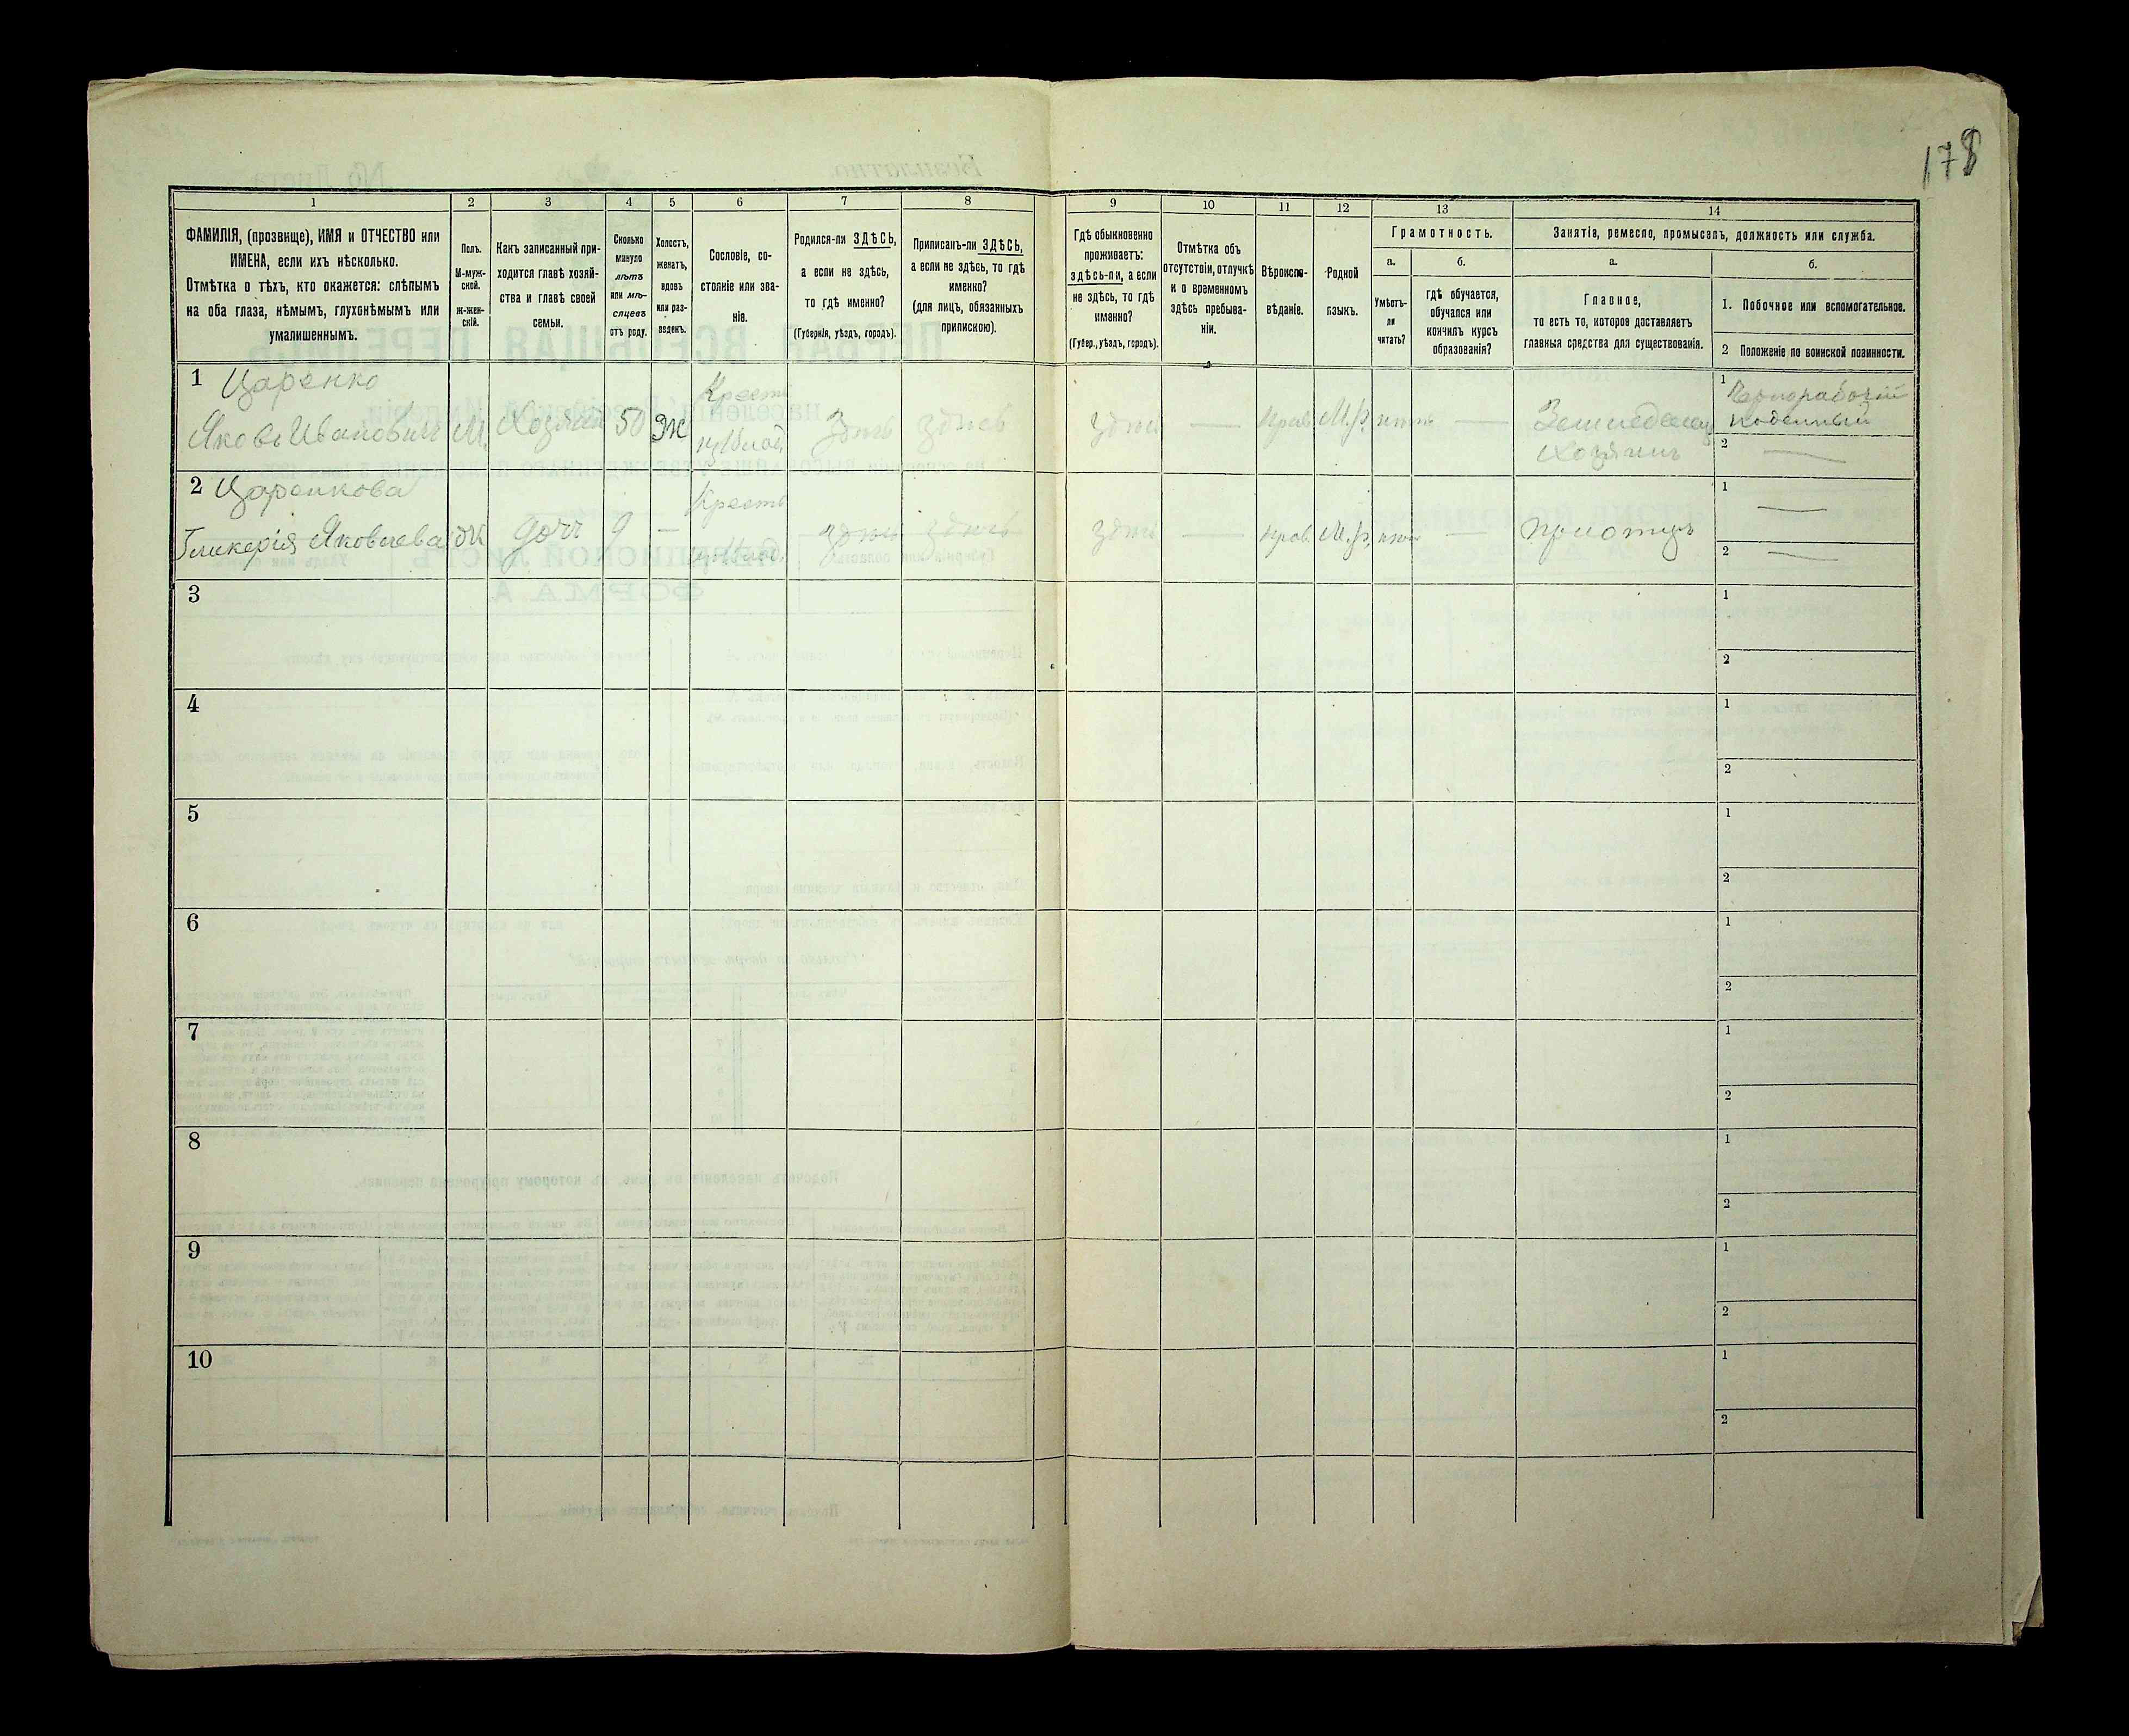 178
1 2 3 4 5 6 7 8 9 10 11 12 13 14
ФАМИЛІЯ, (прозвище), ИМЯ и ОТЧЕСТВО или
ИМЕНА, если ихъ нѣсколько.
Отмѣтка о тѣхъ, кто окажется: слѣпымъ
на оба глаза, нѣмымъ, глухонѣмымъ или
умалишеннымъ.
Полъ.
М-муж-
ской.
ж-жен-
скій.
Какъ записанный при-
ходится главѣ хозяй-
ства и главѣ своей
семьи.
Сколько
минуло
лѣтъ
или мѣ-
сяцевъ
отъ роду.
Холостъ,
женатъ,
вдовъ
или раз-
веденъ.
Сословіе, со-
стояніе или зва-
ніе.
Родился-ли ЗДѢСЬ,
а если не здѣсь,
то гдѣ именно?
(Губернія, уѣздъ, городъ).
Приписанъ-ли ЗДѢСЬ,
а если не здѣсь, то гдѣ
именно?
(для лицъ, обязанныхъ
припискою).
Гдѣ обыкновенно
проживаетъ:
здѣсь-ли, а если
не здѣсь, то гдѣ
именно?
(Губер., уѣздъ, городъ).
Отмѣтка объ
отсутствіи, отлучкѣ
и о временномъ
здѣсь пребыва-
ніи.
Вѣроиспо-
вѣданіе.
Родной
языкъ.
Грамотность.
а.
Умѣетъ-
ли
читать?
б.
гдѣ обучается,
обучался или
кончилъ курсъ
образованія?
Занятія, ремесло, промыселъ, должность или служба.
а.
Главное,
то есть то, которое доставляетъ
главныя средства для существованія.
б.
1. Побочное или вспомогательное.
2 Положеніе по воинской повинности.
1 Царенко
Яковъ Ивановичъ М. Хозяинъ 50 Ж
Крест.
из Влад.
здѣсь здѣсь здѣсь — Прав. М.р. нѣтъ —
Земледѣлец
Хозяинъ
1 Чернорабочій
поденный
2 —
2 Царенкова
Гликерія Яковлева Ж дочь 9 —
Крест.
здѣсь здѣсь здѣсь — прав. М.р. нѣтъ — при отцѣ
1 —
2 —
3 1
2
4 1
2
5 1
2
6 1
2
7 1
2
8 1
2
9 1
2
10 1
2